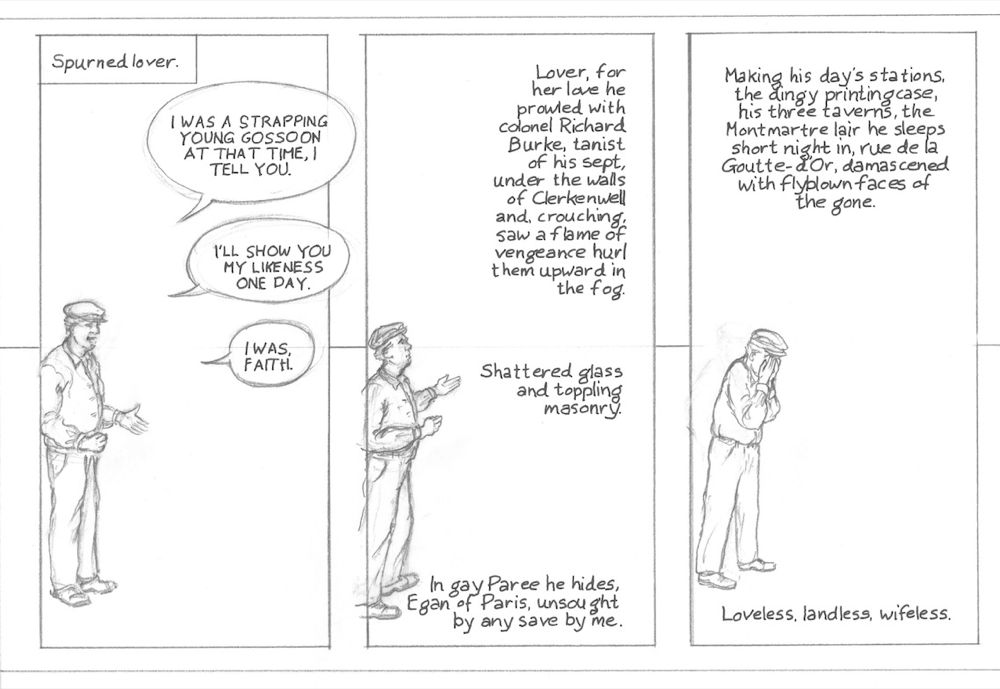 Spurned lover.
I WAS A STRAPPING
YOUNG GOSSOON
AT THAT TIME, I
TELL YOU.
I'LL SHOW YOU
MY LIKENESS
ONE DAY.
I WAS,
FAITH.
Lover, for
her love he
prowled with
colonel Richard
Burke, tanist
of his sept,
under the walls
of Clerkenwell
and, crouching,
saw a flame of
vengeance hurl
them upward in
the fog.
Shattered glass
and toppling
masonry.
In gay Paree he hides,
Egan of Paris, unsought
by any save by me.
Making his day's stations,
the dingy printingcase,
his three taverns, the
Montmartre lair he sleeps
short night in, rue de la
Goutte-d'Or, damascened
with flyblown faces of
the gone.
Loveless, landless, wifeless.